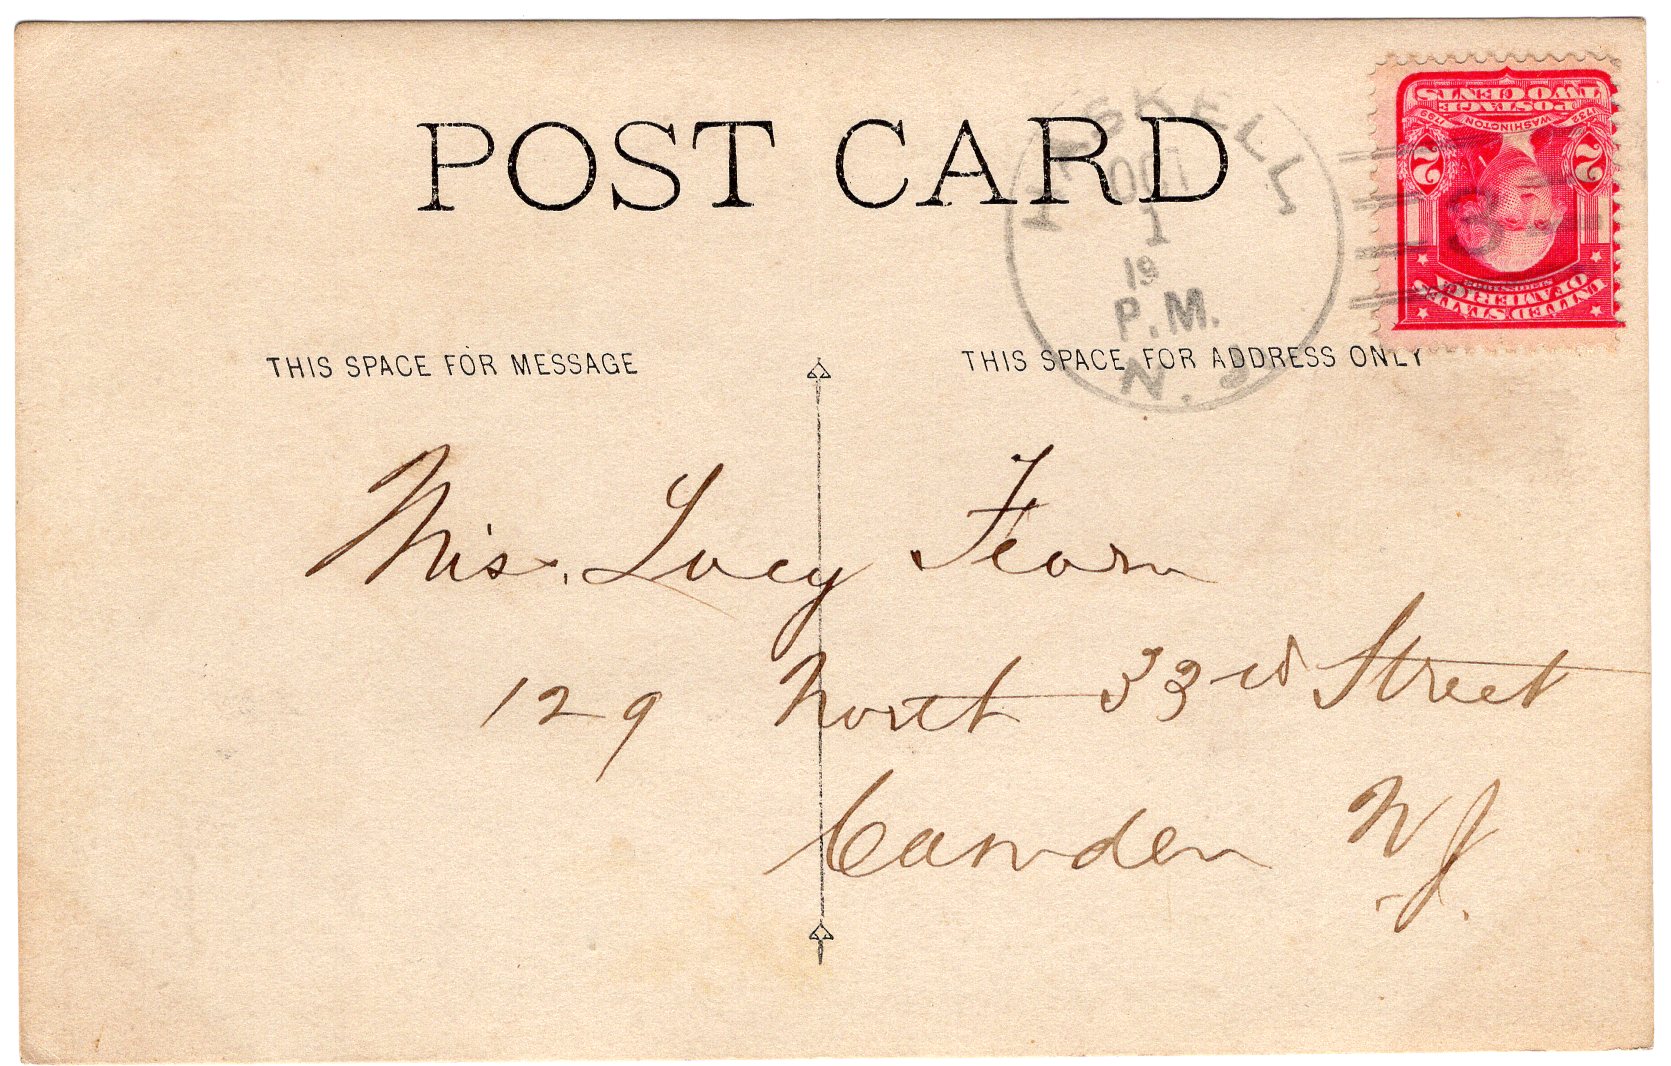 POST CARD
HASKELL
OCT
1
19
P.M.
N. J.
UNITED STATES
OF AMERICA
2 2
1732 WASHINGTON 1799
POSTAGE
TWO CENTS
3
THIS SPACE FOR MESSAGE
THIS SPACE FOR ADDRESS ONLY
Mis. Lucy Fearn
129 North 33rd Street
Camden N J.